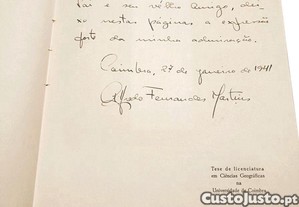 tas e seu velho amigo, dei-
xo nestas páginas a expressão
forte da minha admiração.
Coimbra, 27 de janeiro de 1941
Alfredo Fernandes Martins
Tese de licenciatura
em Ciências Geográficas
na
Universidade de Coimbra
CustoJusto.pt